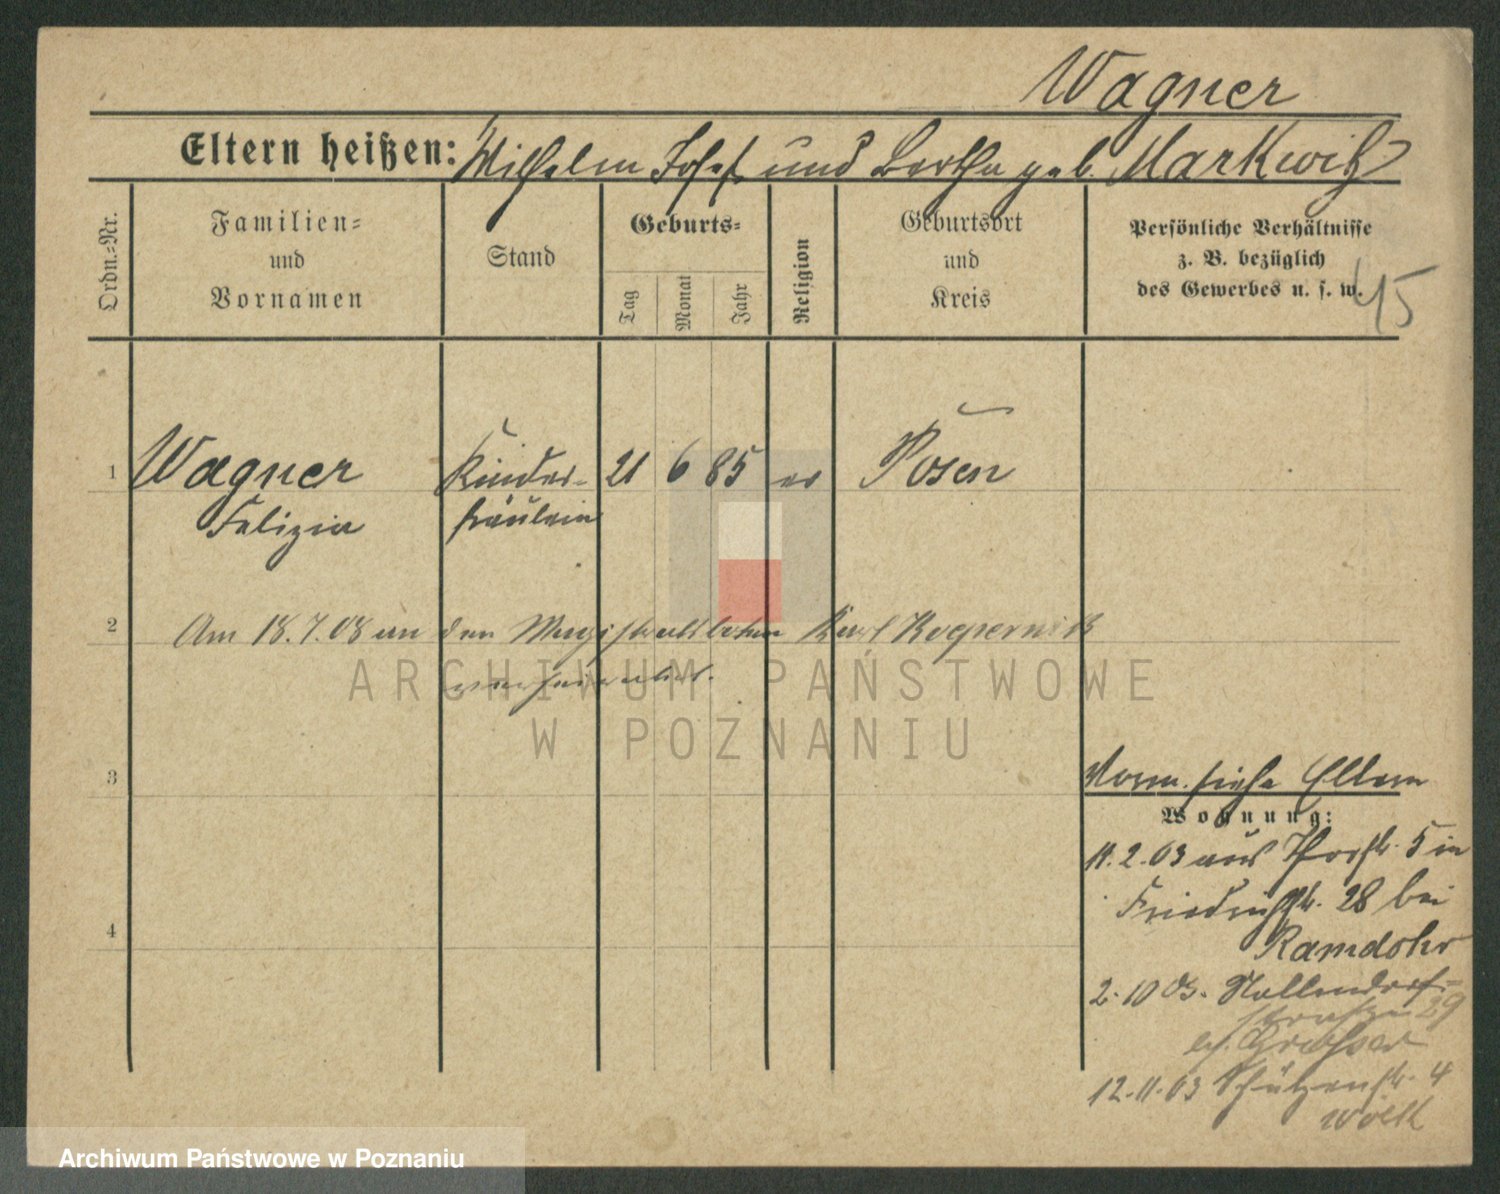 Wagner
Eltern heißen: Wilhelm Josef und Bertha geb. Markwitz
Ordn.-Nr.
Familien-
und
Vornamen
Stand
Geburts-
Tag
Monat
Jahr
Religion
Geburtsort
und
Kreis
Persönliche Verhältnisse
z. B. bezüglich
des Gewerbes u. s. w.
45
1
Wagner
Felizia
Kinder-
fräulein
21
6
85
ev
Posen
2
Am 18.7.08 an den Magistratsboten Karl Koepernik
verheiratet.
ARCHIWUM PAŃSTWOWE
W POZNANIU
3
Vorm. siehe Eltern
Wohnung:
11.2.03 aus 5 in
Friedrichstr. 28 bei
Ramdohr
4
2.10 03. Nollendorf-
straße 29
bei
12.11.03 Schützenstr. 4
Archiwum Państwowe w Poznaniu